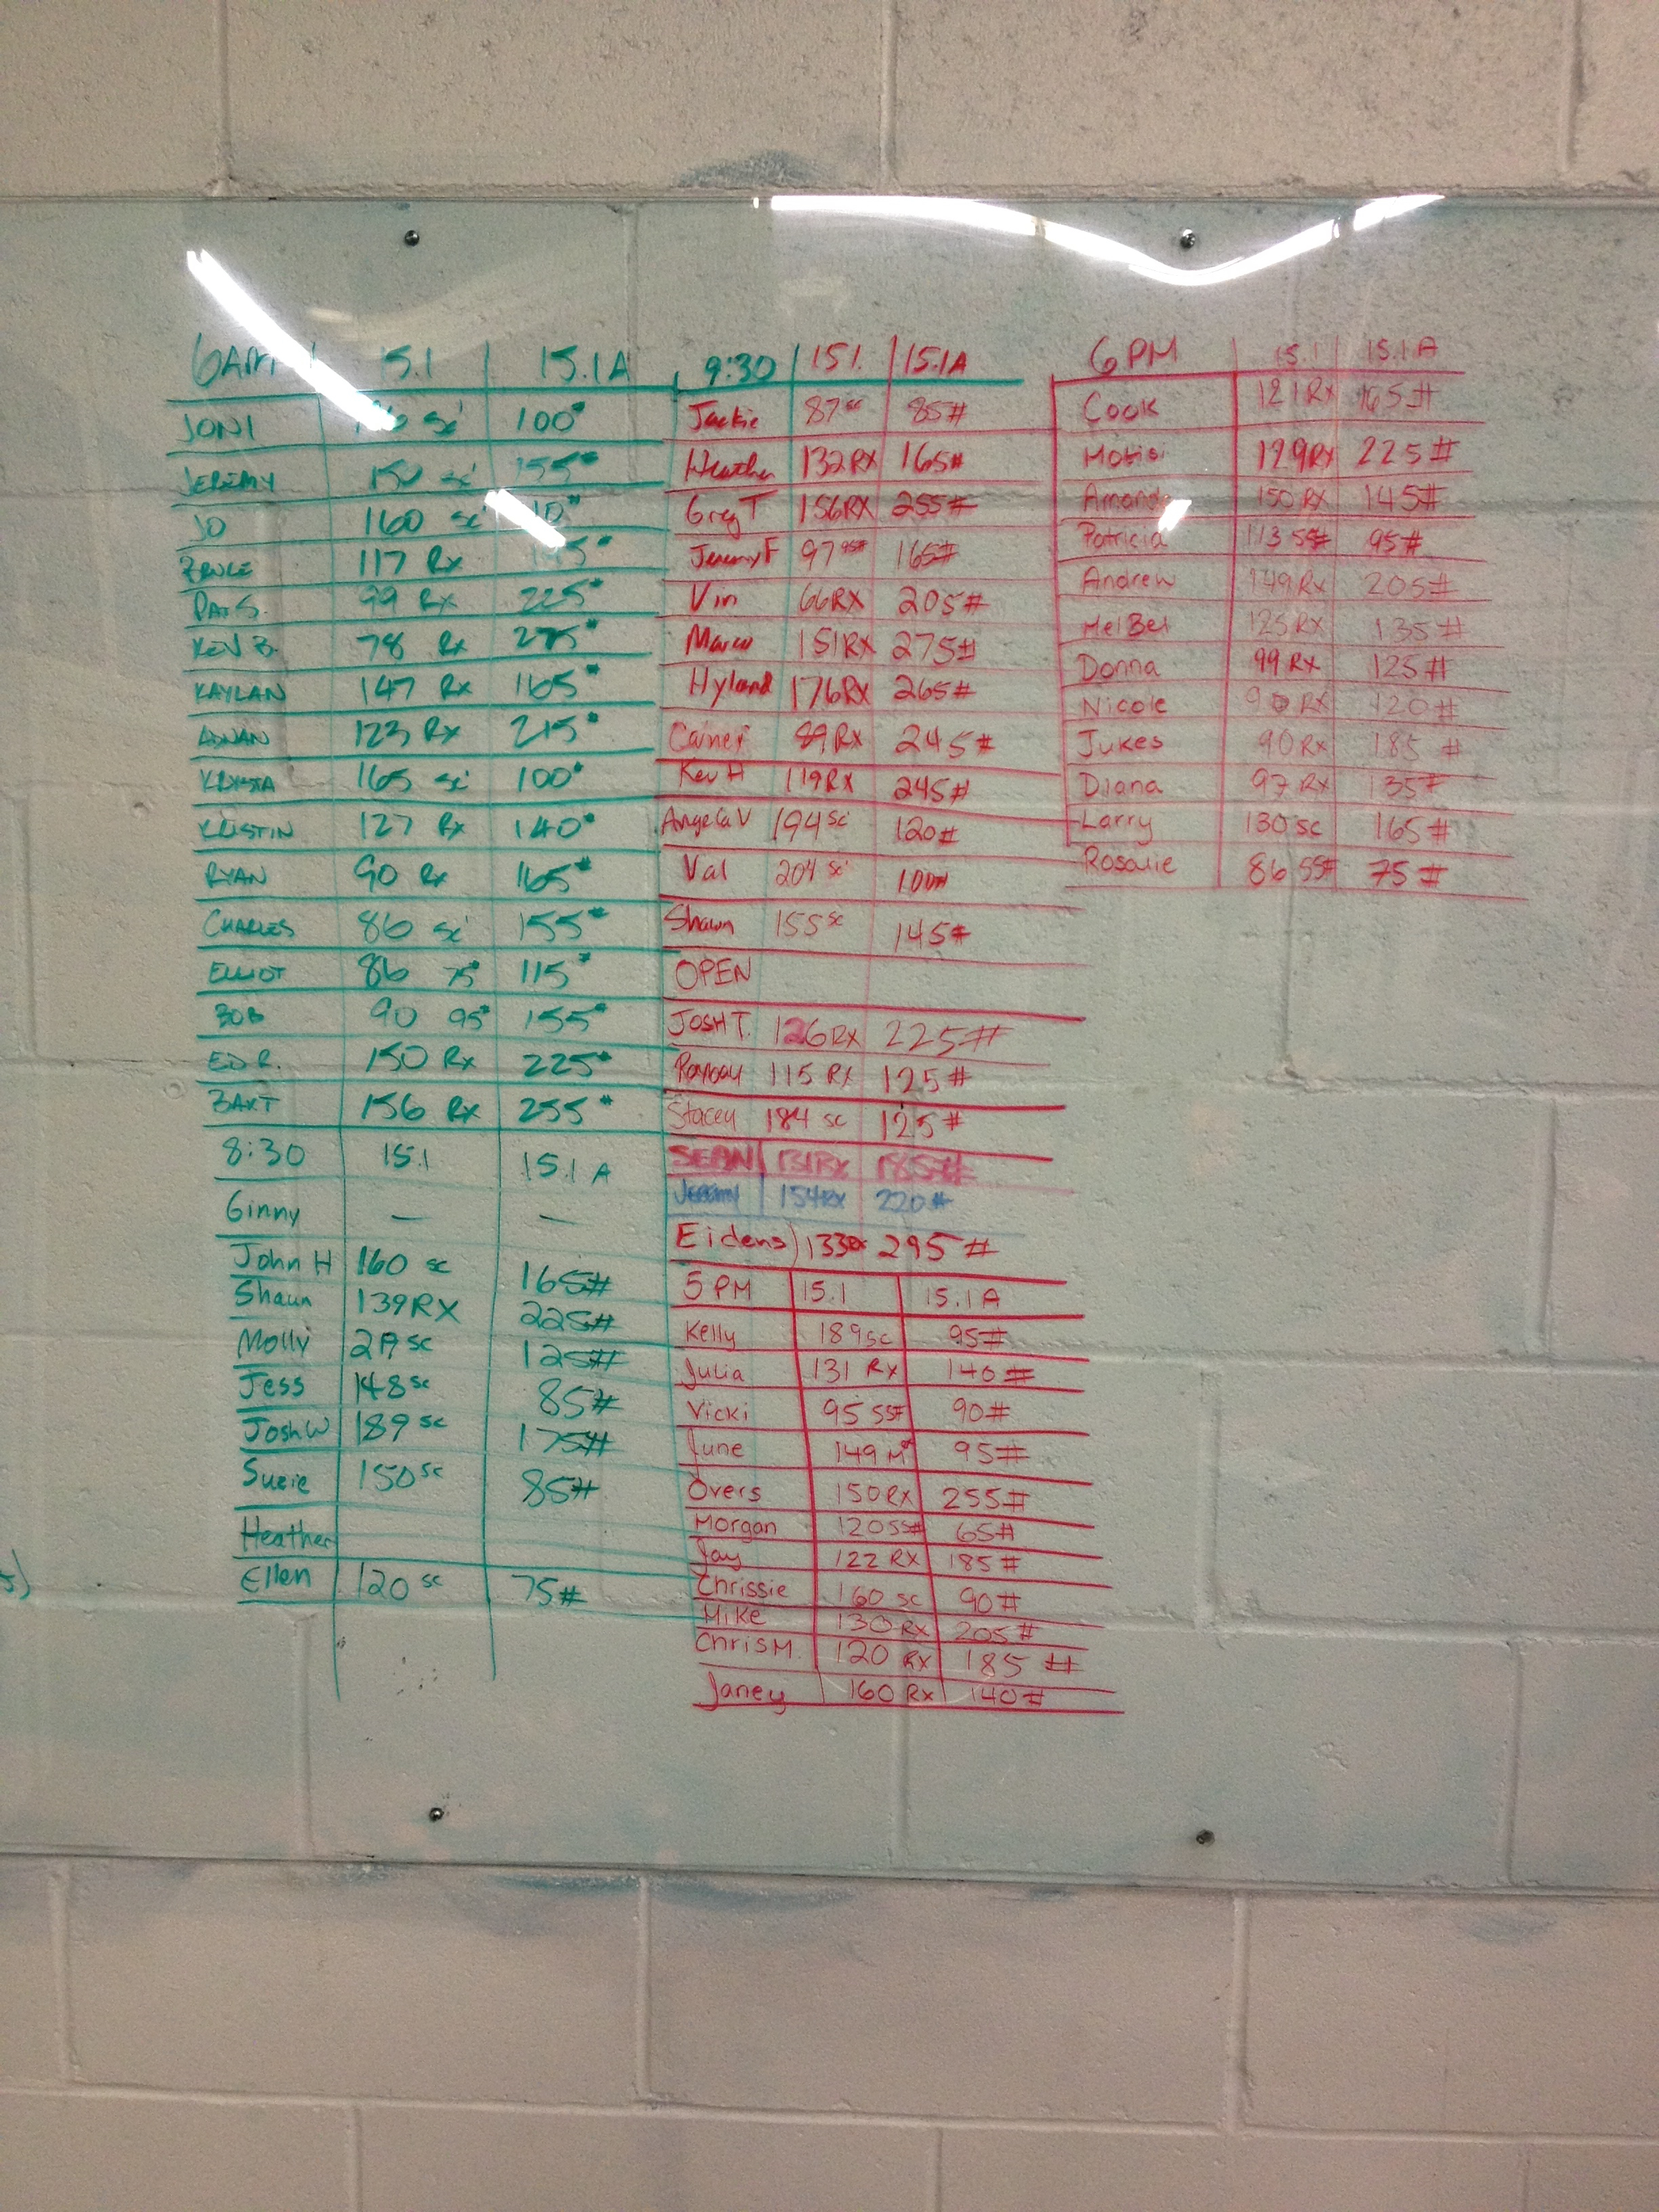 6AM 15.1 15.1A
JONI sc 100#
JEREMY 150 sc 155#
JO 160 sc
BRUCE 117 Rx
PAT S. 99 Rx 225#
KEV B. 78 Rx
KAYLAN 147 Rx 165#
ADNAN 123 Rx 215#
KRYSTA 165 sc 100#
KRISTIN 127 Rx 140#
RYAN 90 Rx 165#
CHARLES 86 sc 155#
ELLIOT 86 75# 115#
BOB 90 95# 155#
ED R. 150 Rx 225#
BART 156 Rx 255#
8:30 15.1 15.1A
Ginny — —
John H 160 sc 165#
Shaun 139 RX 225#
Molly sc 125#
Jess 148 sc 85#
Josh W 189 sc 175#
Suzie 150 sc 85#
Heather
Ellen 120 sc 75#
9:30 15.1. 15.1A
Jackie 87 sc 85#
Heather 132 RX 165#
Greg T 156 RX 255#
Jeremy F 97 95# 165#
Vin 66 RX 205#
Marco 151 RX 275#
Hyland 176 RX 265#
89 RX 245#
Kev H 119 RX 245#
Angela V 194 sc 120#
Val 204 sc 100#
Shawn 155 sc 145#
OPEN
JOSH T. 126 RX 225#
115 RX 125#
Stacey 184 sc 125#
SEAN 131 Rx 185#
JEREMY 154 RX 220#
Eidens 133 Rx 295#
5 PM 15.1 15.1A
Kelly 189 sc 95#
Julia 131 RX 140#
Vicki 95 55# 90#
June 149 95#
Overs 150 RX 255#
Morgan 120 55# 65#
Jay 122 RX 185#
Chrissie 160 sc 90#
Mike 130 RX 205#
Chris M. 120 RX 185#
Janey 160 RX 140#
6 PM 15.1 15.1A
Cook 121 RX 165#
129 RX 225#
Amanda 150 RX 145#
Patricia 113 55# 95#
Andrew 149 RX 205#
Mel Bel 125 RX 135#
Donna 99 RX 125#
Nicole 90 RX 120#
Jukes 90 RX 185#
Diana 97 RX 135#
Larry 130 sc 165#
Rosalie 86 55# 75#